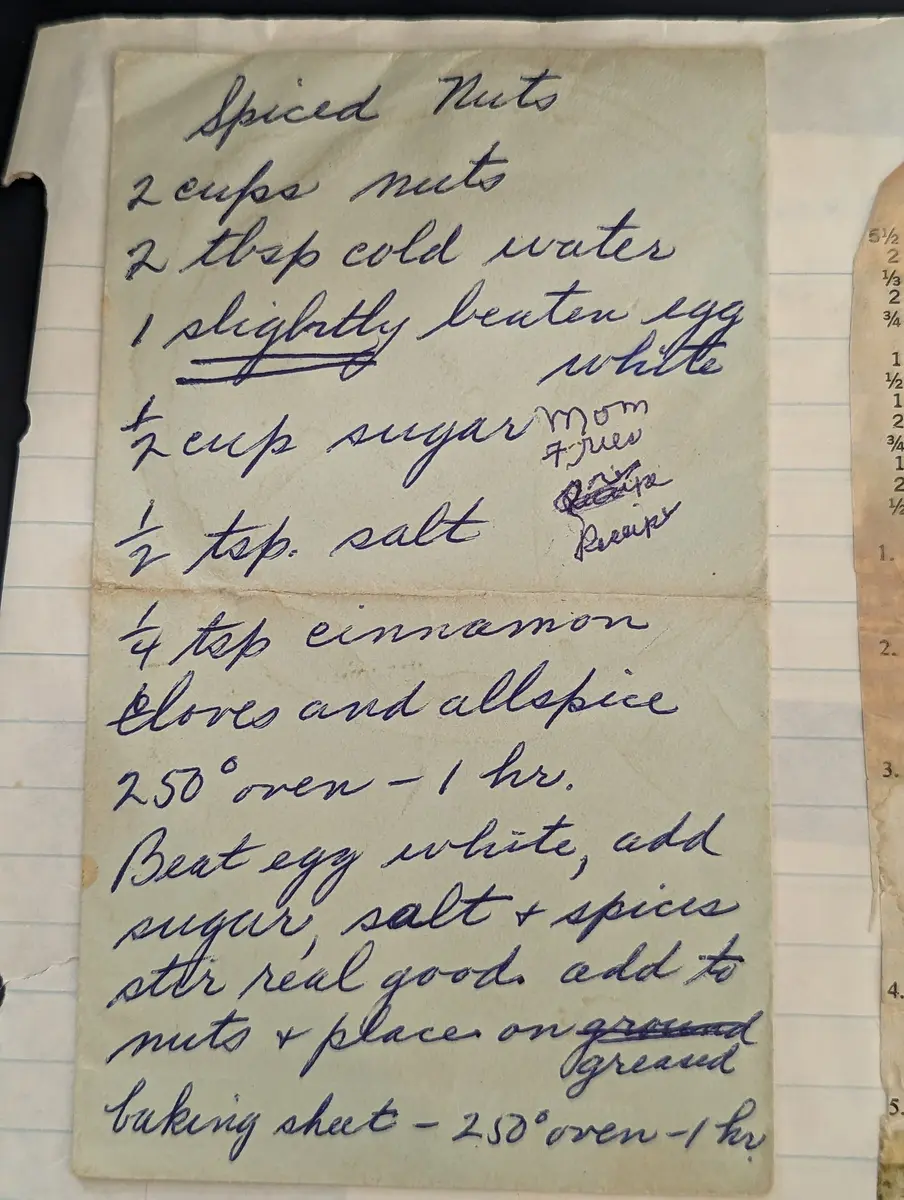 Spiced Nuts
2 cups nuts
2 tbsp cold water
1 slightly beaten egg
white
1/2 cup sugar
Mom
Receipt
1/2 tsp. salt
1/4 tsp cinnamon
cloves and allspice
250° oven - 1 hr.
Beat egg white, add
sugar, salt + spices
stir real good. add to
nuts + place on ground
greased
baking sheet - 250° oven - 1 hr.
5½
2
⅓
2
¾
1
½
1
2
¾
1
2
½
1.
2.
3.
4.
5.